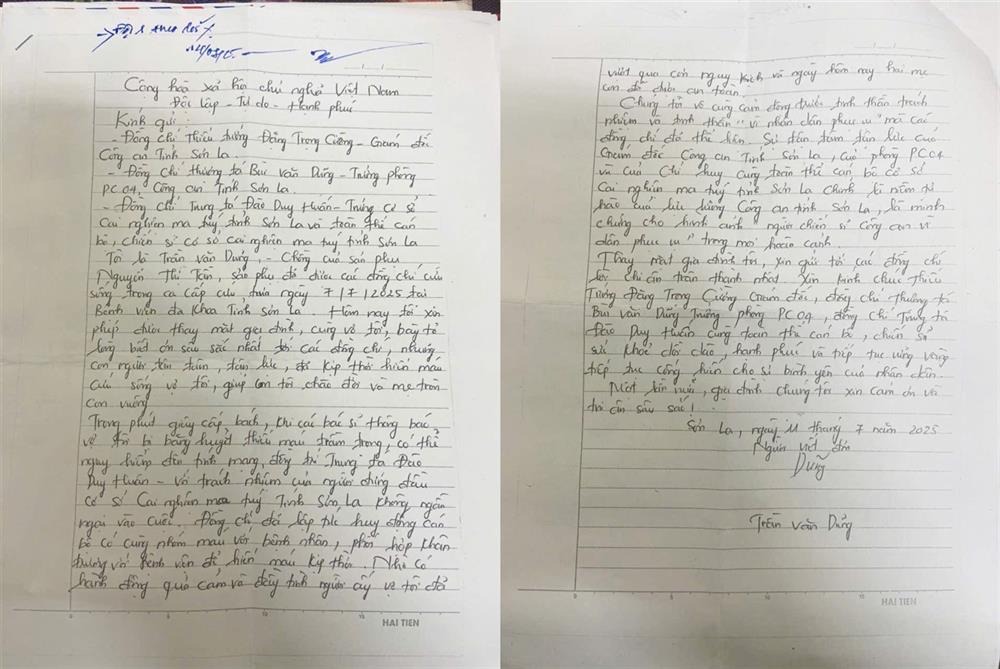 Cộng hòa xã hội chủ nghĩa Việt Nam
Độc lập - Tự do - Hạnh phúc
Kính gửi:
- Đồng chí Thiếu tướng Đặng Trọng Cường - Giám đốc
Công an Tỉnh Sơn La.
- Đồng chí thượng tá Bùi Văn Dũng - Trưởng phòng
PC04, Công an Tỉnh Sơn La.
- Đồng chí Trung tá Đào Duy Huấn - Trưởng Cơ sở
Cai nghiện ma túy tỉnh Sơn La và toàn thể cán
bộ, chiến sĩ cơ sở Cai nghiện ma túy tỉnh Sơn La
Tôi là Trần Văn Dũng, - Chồng của sản phụ
Nguyễn Thị Tân, sản phụ đã được các đồng chí cứu
sống trong ca cấp cứu, đêm ngày 7/7/2025 tại
Bệnh viện đa khoa Tỉnh Sơn La. Hôm nay tôi xin
phép được thay mặt gia đình, cùng vợ tôi, bày tỏ
lòng biết ơn sâu sắc nhất tới các đồng chí, những
con người tận tâm, tận lực, đã kịp thời hiến máu
cứu sống vợ tôi, giúp con tôi chào đời và mẹ tròn
con vuông.
Trong phút giây cấp bách, khi các bác sĩ thông báo
vợ tôi bị băng huyết thiếu máu trầm trọng, có thể
nguy hiểm đến tính mạng, đồng chí Trung tá Đào
Duy Huấn - với trách nhiệm của người đứng đầu
cơ sở Cai nghiện ma túy Tỉnh Sơn La không ngần
ngại vào cuộc. Đồng chí đã lập tức huy động cán
bộ có cùng nhóm máu với bệnh nhân, phối hợp khẩn
trương với bệnh viện để hiến máu kịp thời. Nhờ có
hành động quả cảm và đầy tình người ấy vợ tôi đã
HAI TIEN
vượt qua cơn nguy kịch và ngày hôm nay hai mẹ
con đã được an toàn.
Chúng tôi vô cùng cảm động trước tinh thần trách
nhiệm và tinh thần "vì nhân dân phục vụ" mà các
đồng chí đã thể hiện. Sự tận tâm tận lực của
Giám đốc Công an Tỉnh Sơn La, của phòng PC04
và của Chỉ huy cùng toàn thể cán bộ cơ sở
Cai nghiện ma túy tỉnh Sơn La chính là niềm tự
hào của lực lượng Công an tỉnh Sơn La, là minh
chứng cho hình ảnh "người chiến sĩ công an vì
dân phục vụ" trong mọi hoàn cảnh.
Thay mặt gia đình tôi, xin gửi tới các đồng chí
lời chi ân trân thành nhất. Xin kính chúc Thiếu
Tướng Đặng Trọng Cường Giám đốc, đồng chí Thượng tá
Bùi Văn Dũng Trưởng phòng PC04, đồng chí Trung tá
Đào Duy Huấn cùng toàn thể cán bộ, chiến sĩ
sức khỏe dồi dào, hạnh phúc và tiếp tục vững vàng
tiếp tục cống hiến cho sự bình yên của nhân dân.
Một lần nữa, gia đình chúng tôi xin cảm ơn và
tri ân sâu sắc!
Sơn La, ngày 11 tháng 7 năm 2025
Người viết đơn
Dũng
Trần Văn Dũng
HAI TIEN